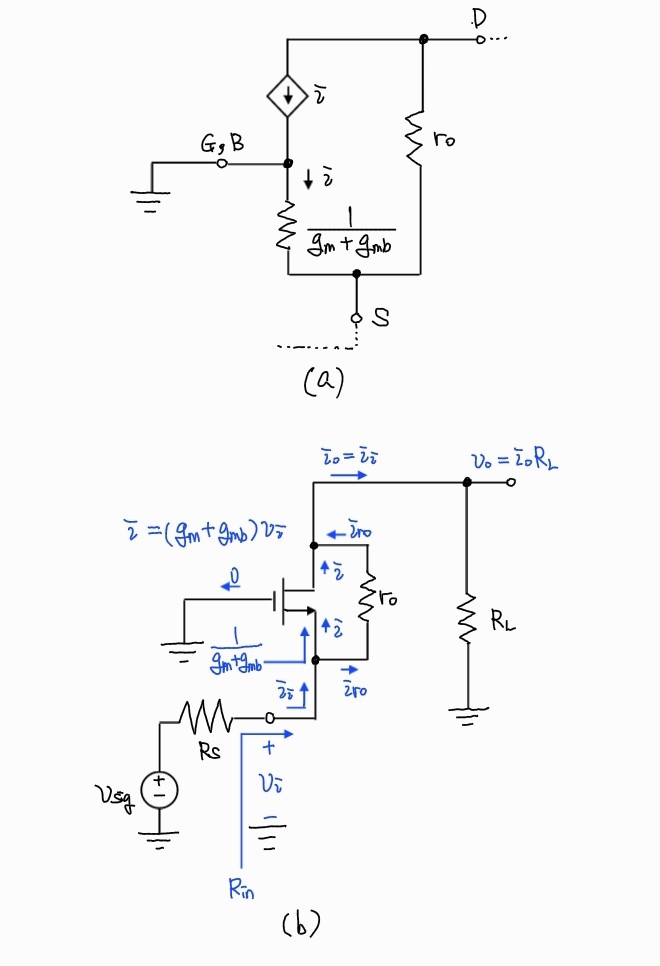 D
i
G, B
ro
i
1
gm + gmb
S
(a)
io = ii
vo = io RL
i = (gm + gmb) vi
iro
0
i
ro
i
RL
1
gm+gmb
ii
iro
Rs
+
vsig
+
−
vi
−
Rin
(b)